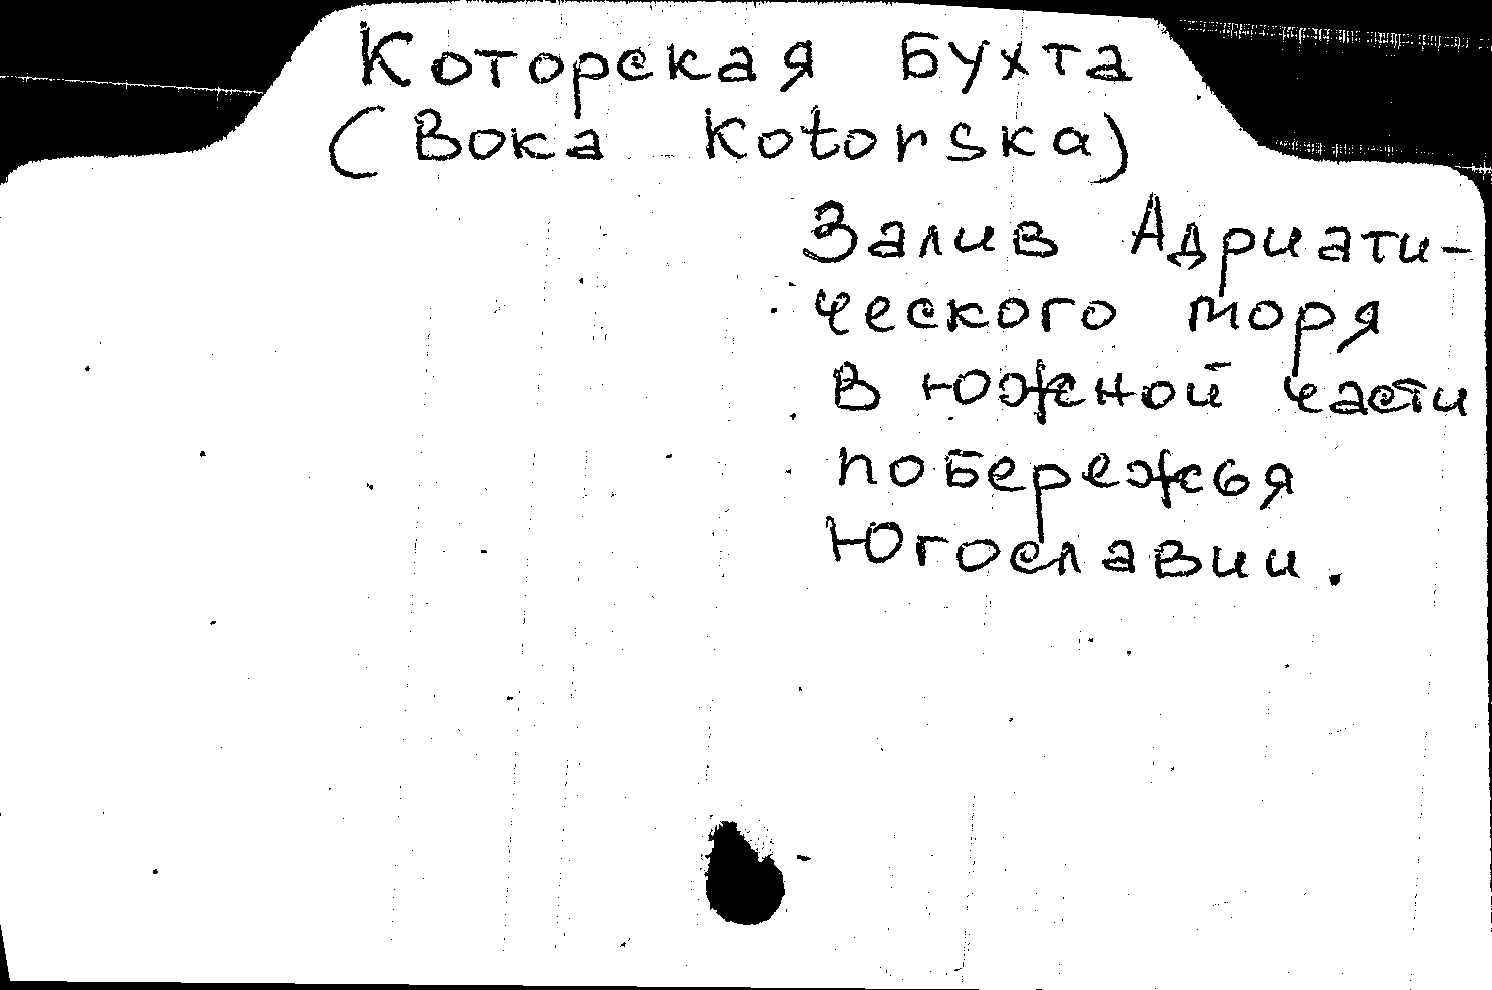 Которская Бухта
(Boka Kotorska)
Залив Адриати-
ческого моря
в южной части
побережья
Югославии.